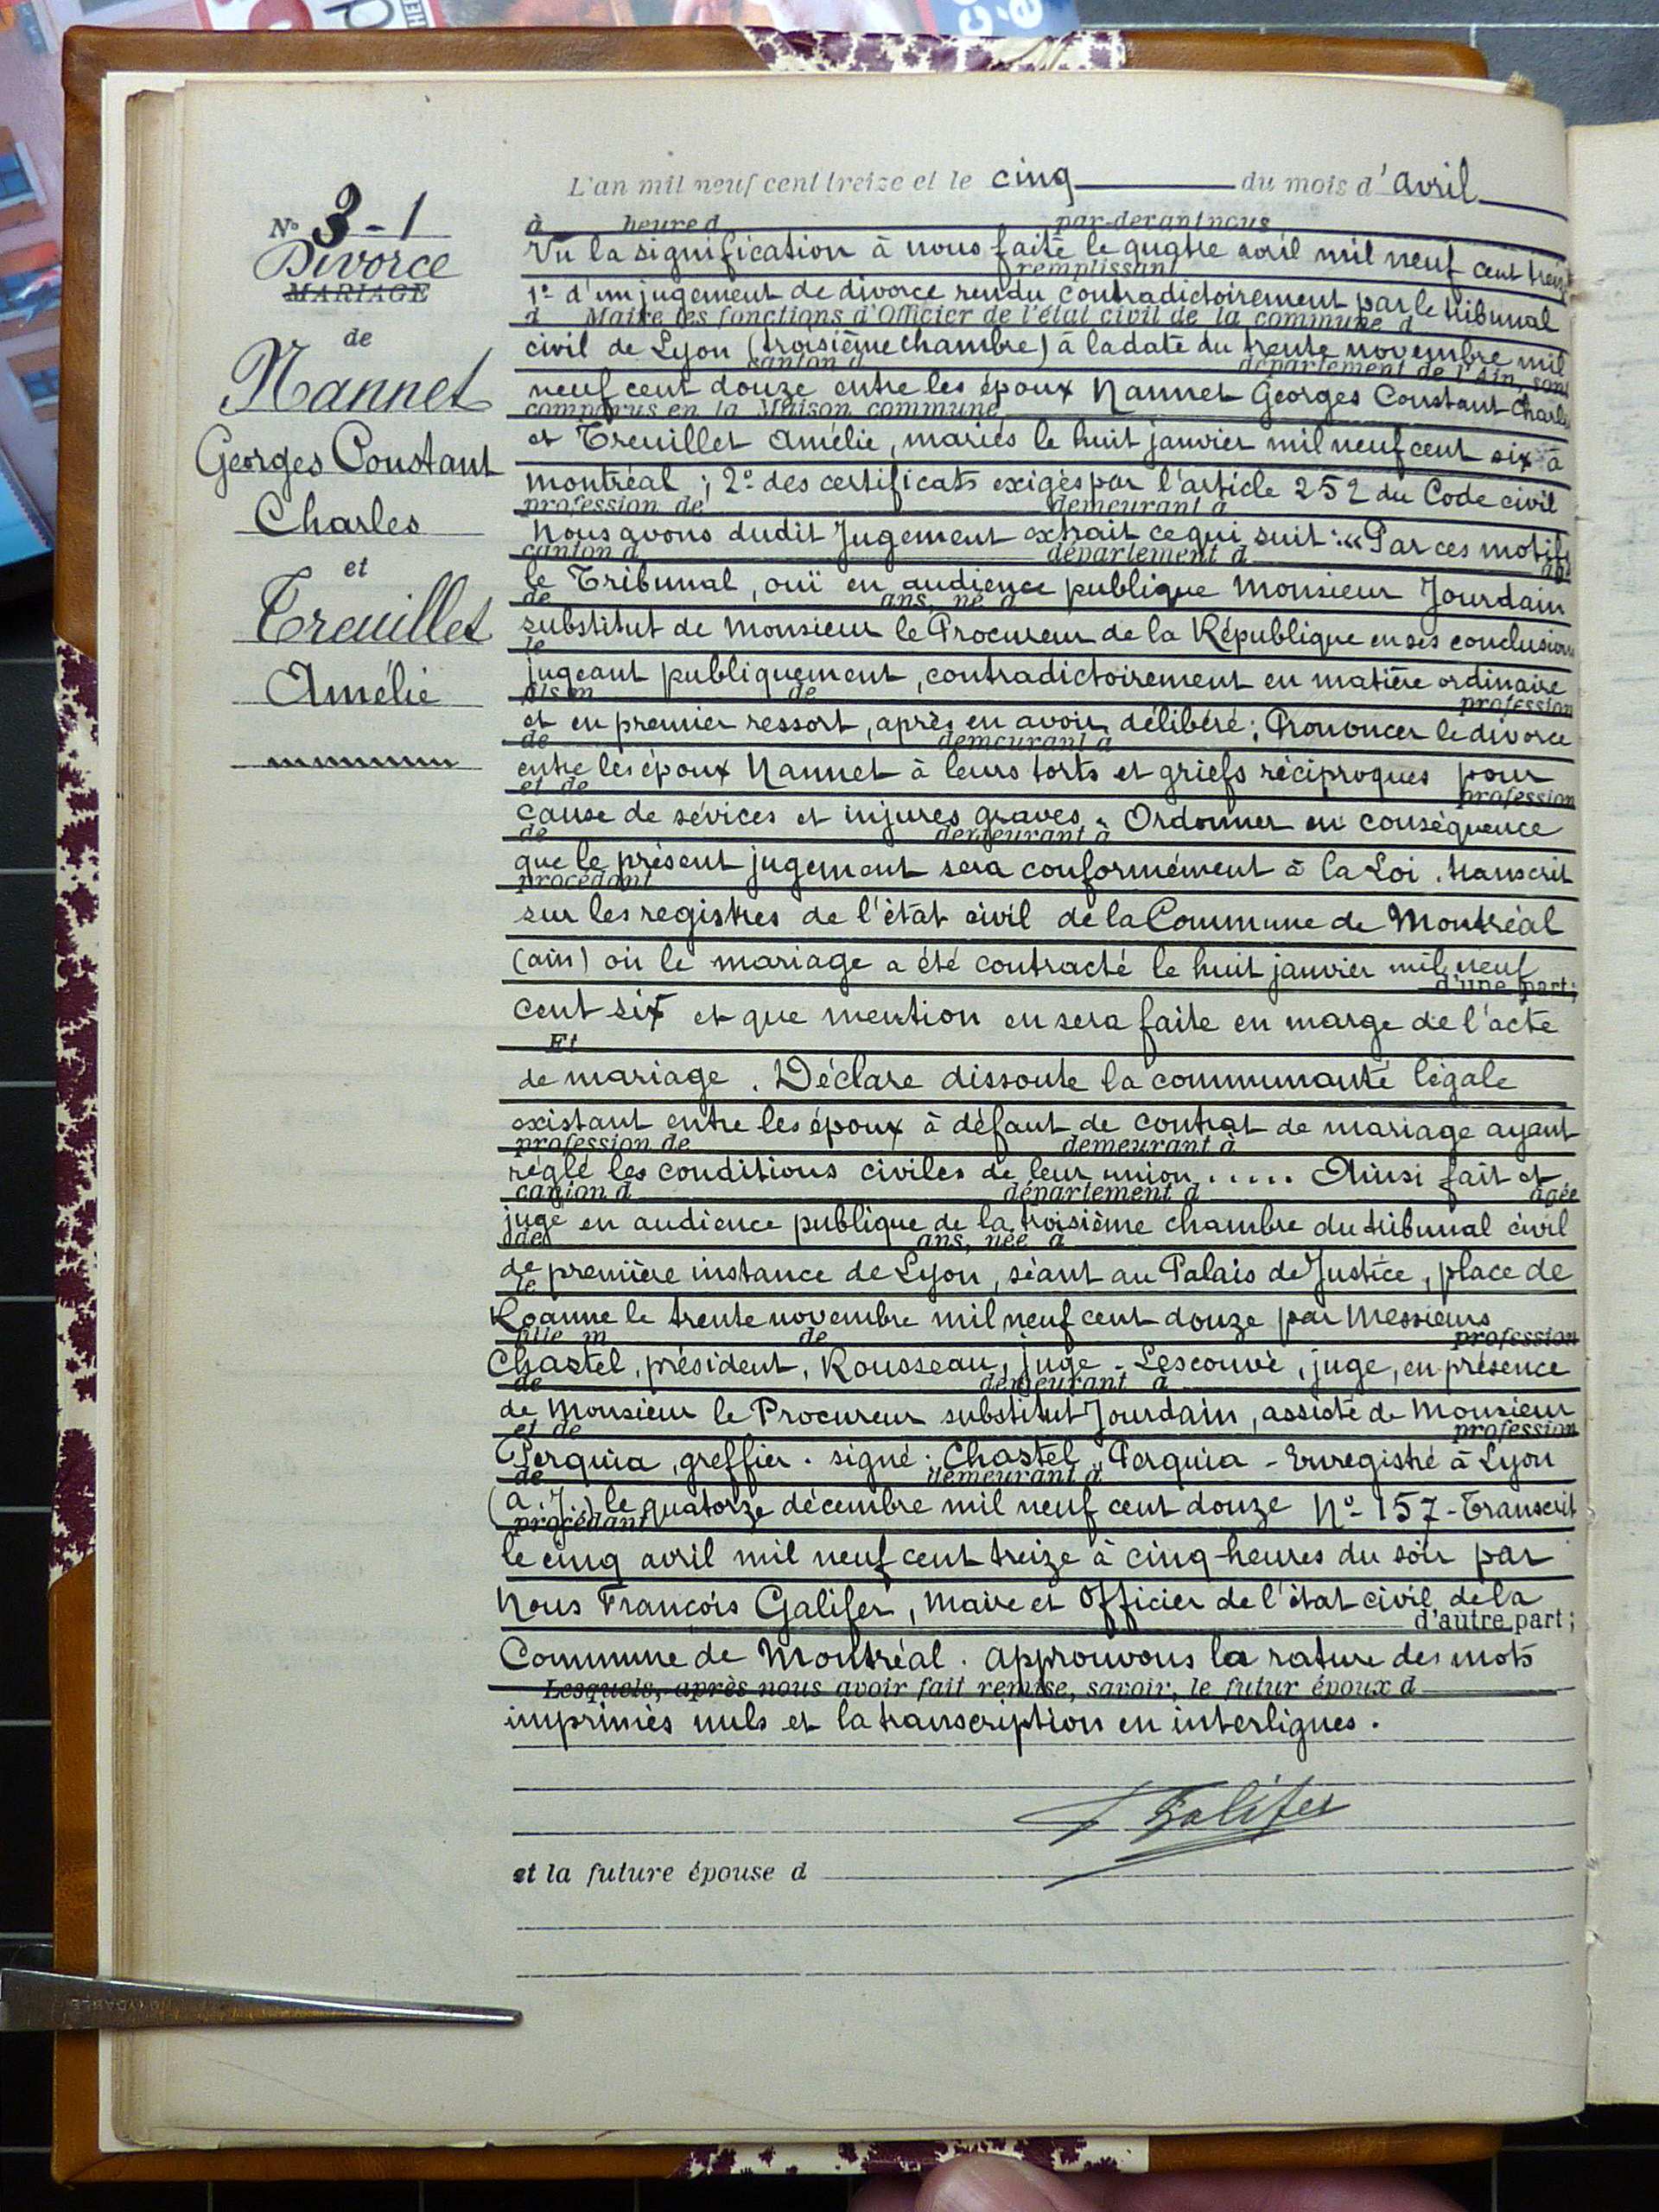 L'an mil neuf cent treize et le cinq du mois d'avril
N° 3-1
Divorce
MARIAGE
de
Nannet
Georges Constant
Charles
et
Treuillet
Amélie
à heure d par-devant nous
Vu la signification à nous faite le quatre avril mil neuf cent treize
remplissant
1° d'un jugement de divorce rendu contradictoirement par le tribunal
d Maire les fonctions d'Officier de l'état civil de la commune d
civil de Lyon (troisième chambre) à la date du trente novembre mil
canton d département de l'Ain, sont
neuf cent douze entre les époux Nannet Georges Constant Charles
comparus en la Maison commune
et Treuillet Amélie, mariés le huit janvier mil neuf cent six à
montréal ; 2° des certificats exigés par l'article 252 du Code civil
profession de demeurant à
Nous avons dudit Jugement extrait ce qui suit : « Par ces motifs
canton d département d âgé
le Tribunal, ouï en audience publique Monsieur Jourdain
de ans, né à
substitut de Monsieur le Procureur de la République en ses conclusions
le
jugeant publiquement, contradictoirement en matière ordinaire
fils m de profession
et en premier ressort, après en avoir délibéré ; Prononcer le divorce
de demeurant à
entre les époux Nannet à leurs torts et griefs réciproques pour
et de profession
cause de sévices et injures graves. Ordonner en conséquence
de demeurant à
que le présent jugement sera conformément à la Loi, transcrit
procédant
sur les registres de l'état civil de la Commune de Montréal
(ain) où le mariage a été contracté le huit janvier mil neuf
d'une part;
cent six et que mention en sera faite en marge de l'acte
Et
de mariage. Déclare dissoute la communauté légale
existant entre les époux à défaut de contrat de mariage ayant
profession de demeurant à
réglé les conditions civiles de leur union..... Ainsi fait et
canton d département d âgée
jugé en audience publique de la troisième chambre du tribunal civil
de ans, née à
de première instance de Lyon, séant au Palais de Justice, place de
le
Roanne le trente novembre mil neuf cent douze par Messieurs
fille m de profession
Chastel, président, Rousseau, juge - Lescouvé, juge, en présence
de demeurant à
de Monsieur le Procureur substitut Jourdain, assisté de Monsieur
et de profession
Perquia, greffier. signé : Chastel, Perquia - Enregistré à Lyon
de demeurant à
(a.J.) le quatorze décembre mil neuf cent douze N° 157 - Transcrit
procédant
le cinq avril mil neuf cent treize à cinq heures du soir par
Nous François Galifer, Maire et Officier de l'état civil de la
d'autre part;
Commune de Montréal. approuvons la rature des mots
Lesquels, après nous avoir fait remise, savoir, le futur époux d
imprimés nuls et la transcription en interlignes.
F Galifer
et la future épouse d